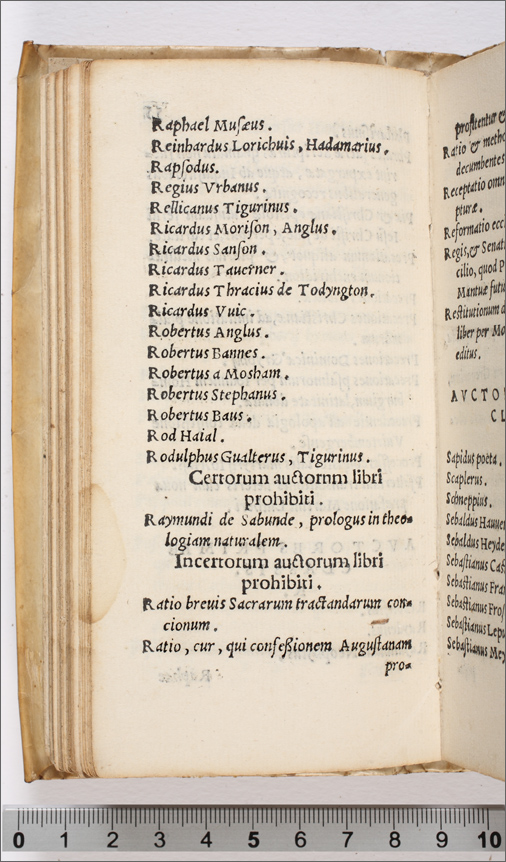 Raphael Musæus.
Reinhardus Lorichuis, Hadamarius.
Rapsodus.
Regius Vrbanus.
Rellicanus Tigurinus.
Ricardus Morison, Anglus.
Ricardus Sanson.
Ricardus Tauerner.
Ricardus Thracius de Todyngton.
Ricardus Vuic.
Robertus Anglus.
Robertus Bannes.
Robertus a Mosham.
Robertus Stephanus.
Robertus Baus.
Rod Haial.
Rodulphus Gualterus, Tigurinus.
Certorum auctorum libri
prohibiti.
Raymundi de Sabunde, prologus in theo-
logiam naturalem.
Incertorum auctorum libri
prohibiti.
Ratio breuis Sacrarum tractandarum con-
cionum.
Ratio, cur, qui confeßionem Augustanam
pro-
profitentur &
Ratio & metho
decumbentes
Receptatio omn
pturæ.
Reformatio eccl
Regis, & Senat
cilio, quod P
Mantuæ futu
Restitutionum a
liber per Mo
editus.
AVCTO
CL
Sapidus poeta.
Scaplerus.
Schneppius.
Sebaldus Hauuen
Sebaldus Heyde
Sebastianus Cast
Sebastianus Fran
Sebastianus Fros
Sebastianus Lepu
Sebastianus Mey
0 1 2 3 4 5 6 7 8 9 10